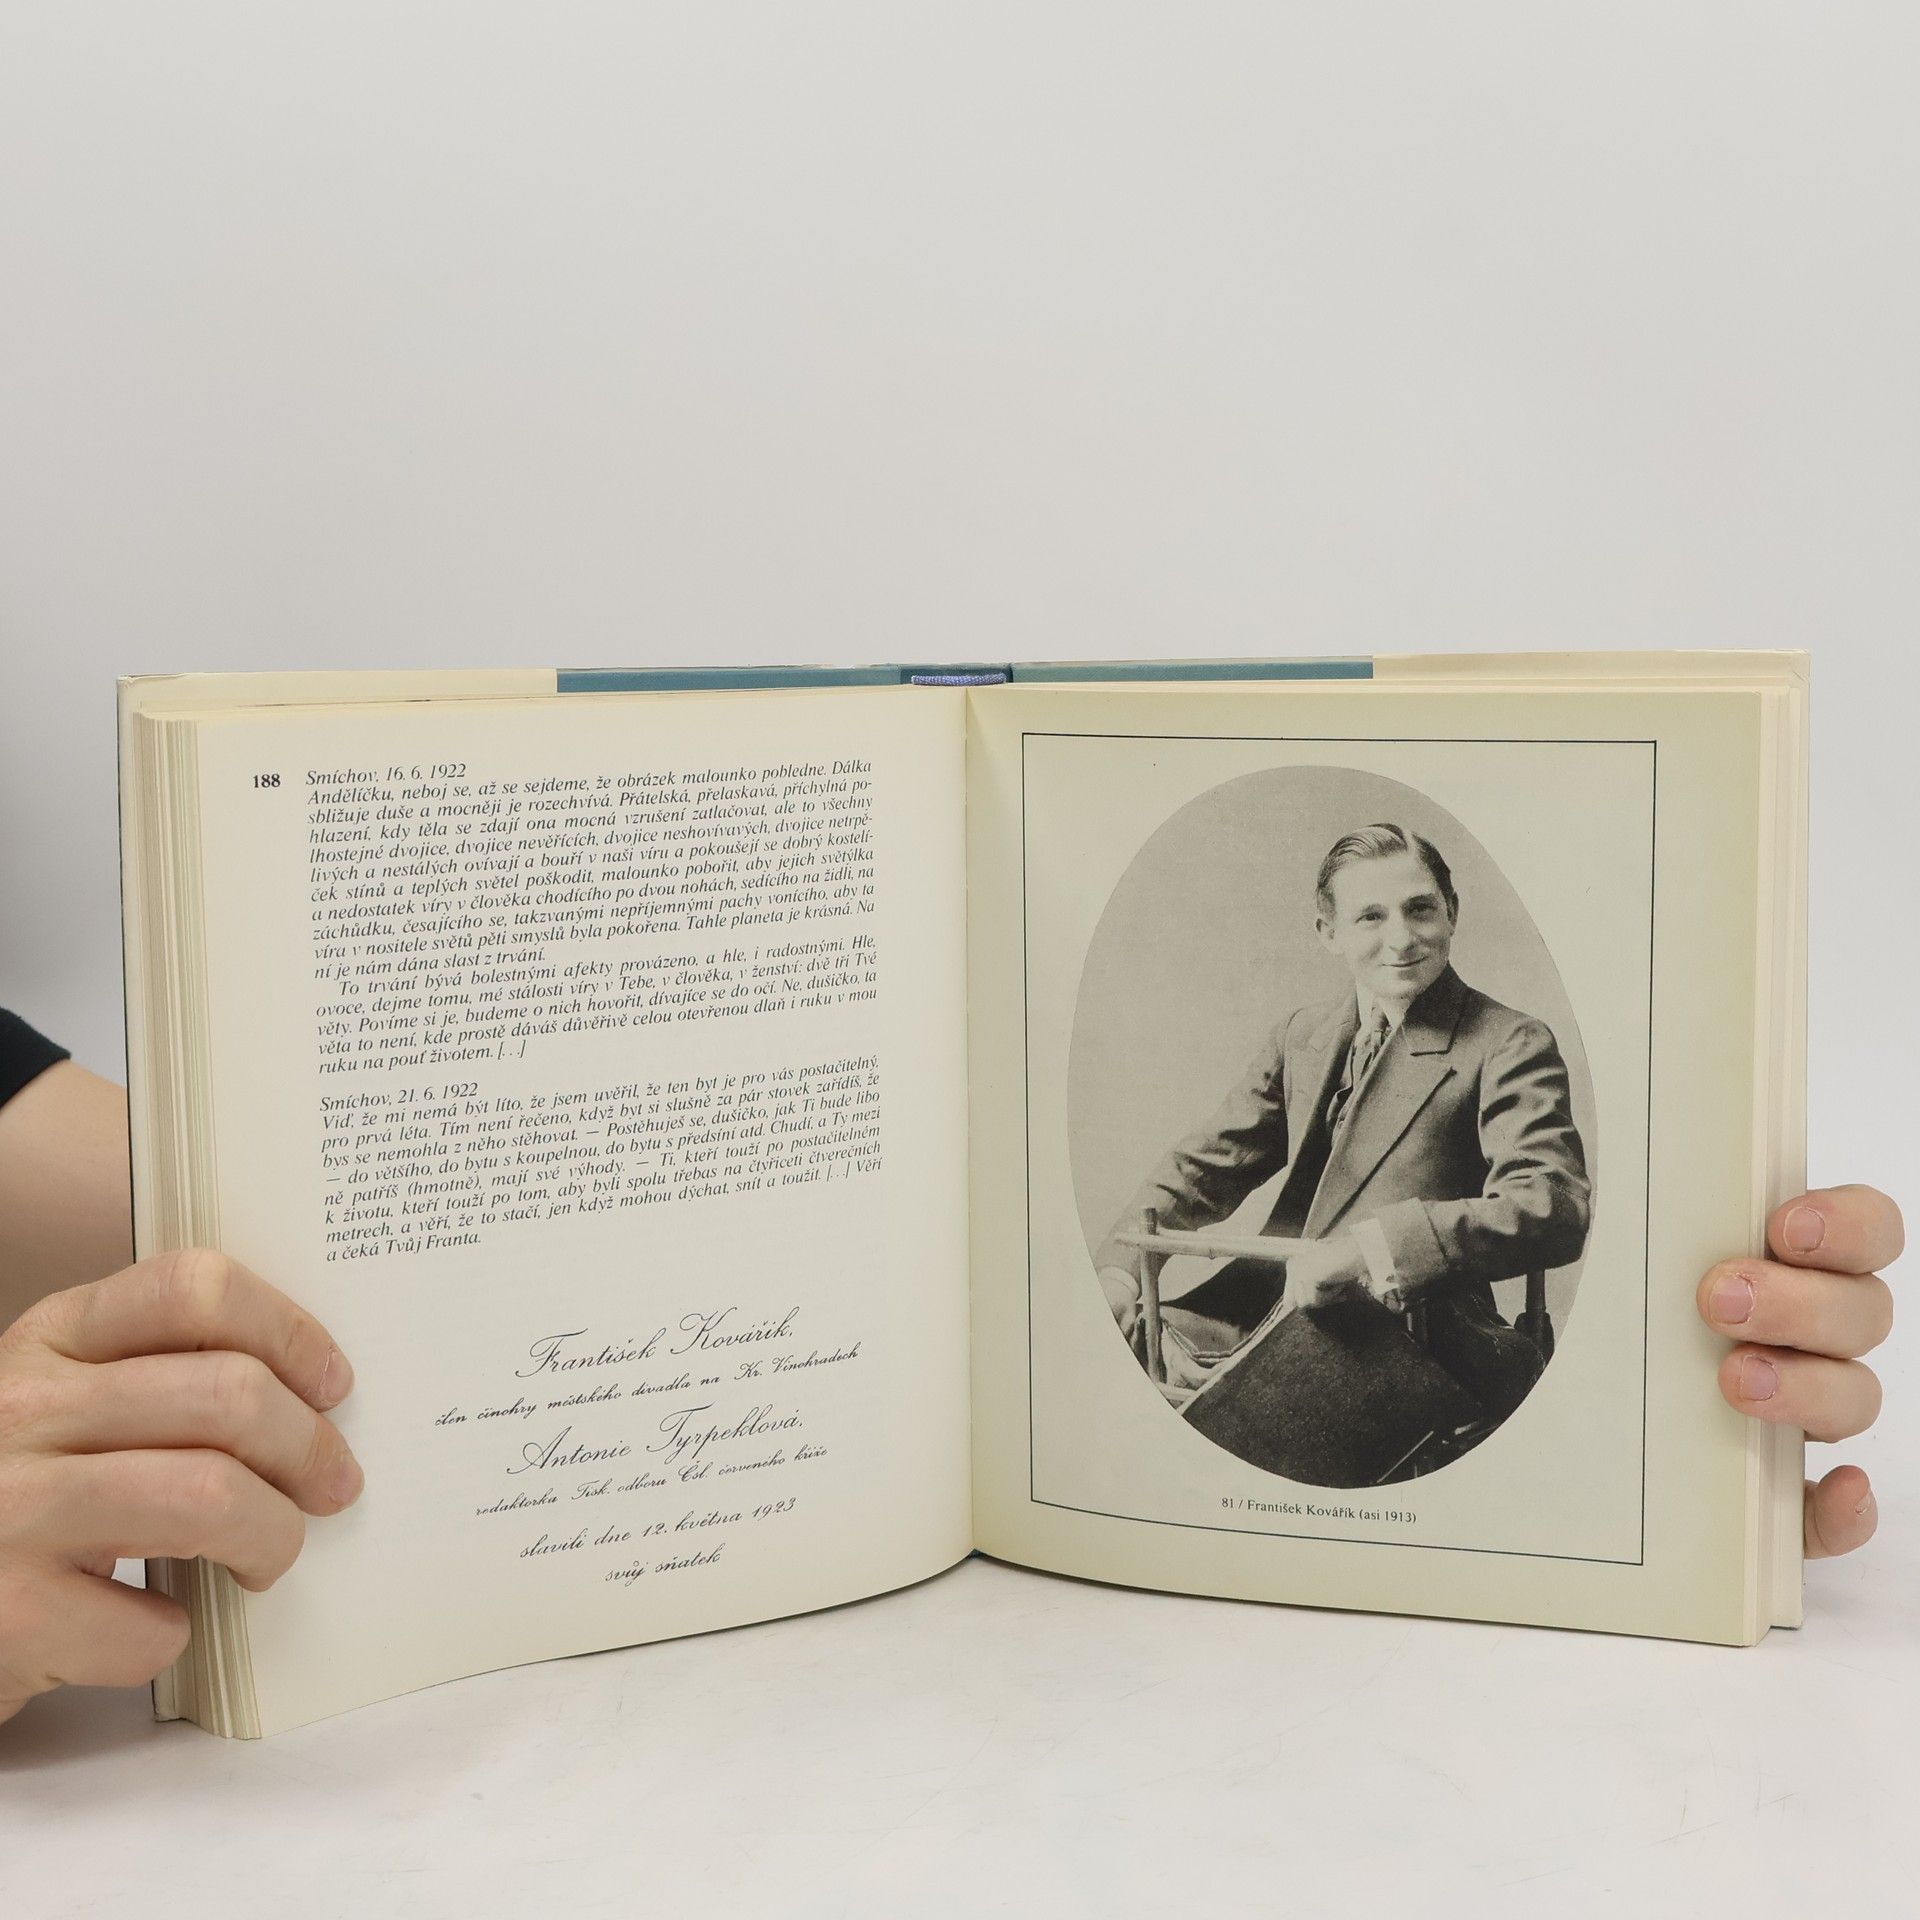 188
Smíchov, 16. 6. 1922
Andělíčku, neboj se, až se sejdeme, že obrázek malounko pobledne. Dálka
sbližuje duše a mocněji je rozechvívá. Přátelská, přelaskavá, příchylná po-
hlazení, kdy těla se zdají ona mocná vzrušení zatlačovat, ale to všechny
lhostejné dvojice, dvojice nevěřících, dvojice neshovívavých, dvojice netrpě-
livých a nestálých ovívají a bouří v naši víru a pokoušejí se dobrý kostelí-
ček stínů a teplých světel poškodit, malounko pobořit, aby jejich světýlka
a nedostatek víry v člověka chodícího po dvou nohách, sedícího na židli, na
záchůdku, česajícího se, takzvanými nepříjemnými pachy vonícího, aby ta
víra v nositele světů pěti smyslů byla pokořena. Tahle planeta je krásná. Na
ní je nám dána slast z trvání.
To trvání bývá bolestnými afekty provázeno, a hle, i radostnými. Hle,
ovoce, dejme tomu, mé stálosti víry v Tebe, v člověka, v ženství: dvě tři Tvé
věty. Povíme si je, budeme o nich hovořit, dívajíce se do očí. Ne, dušičko, ta
věta to není, kde prostě dáváš důvěřivě celou otevřenou dlaň i ruku v mou
ruku na pouť životem. [...]
Smíchov, 21. 6. 1922
Viď, že mi nemá být líto, že jsem uvěřil, že ten byt je pro vás postačitelný,
pro prvá léta. Tím není řečeno, když byt si slušně za pár stovek zařídíš, že
bys se nemohla z něho stěhovat. — Postěhuješ se, dušičko, jak Ti bude libo
— do většího, do bytu s koupelnou, do bytu s předsíní atd. Chudí, a Ty mezi
ně patříš (hmotně), mají své výhody. — Ti, kteří touží po postačitelném
k životu, kteří touží po tom, aby byli spolu třebas na čtyřiceti čtverečních
metrech, a věří, že to stačí, jen když mohou dýchat, snít a toužit. [...] Věří
a čeká Tvůj Franta.
František Kovářík,
člen činohry městského divadla na Kr. Vinohradech
Antonie Tyrpeklová,
redaktorka Tisk. odboru Čsl. červeného kříže
slavili dne 12. května 1923
svůj sňatek
81 / František Kovářík (asi 1913)